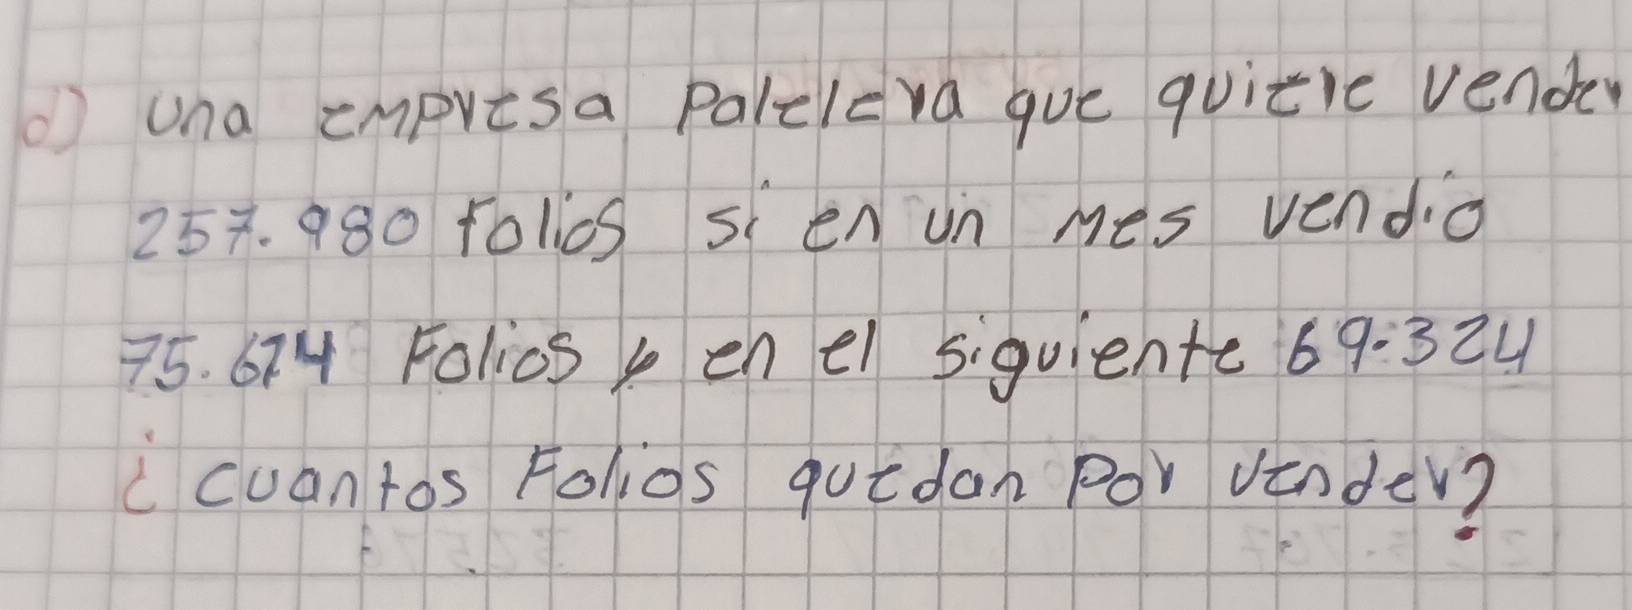 d) una empresa Papelera que quiere vender
257.980 folios si en un mes vendio
75.614 Folios y en el siguiente 69.324
¿cuantos Folios quedan Por vender?